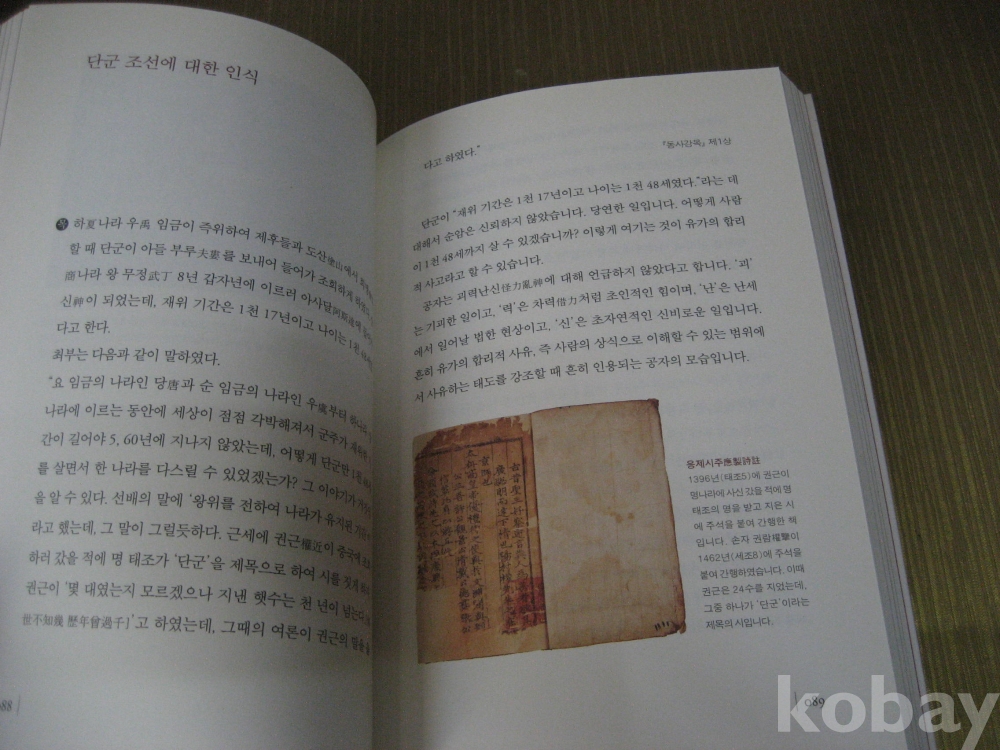 단군 조선에 대한 인식
하夏나라 우禹 임금이 즉위하여 제후들과 도산塗山에서
할 때 단군이 아들 부루夫婁를 보내어 들어가 조회하게
商나라 왕 무정武丁 8년 갑자년에 이르러 아사달阿斯達에
신神이 되었는데, 재위 기간은 1천 17년이고 나이는 1천
다고 한다.
최부는 다음과 같이 말하였다.
“요 임금의 나라인 당唐과 순 임금의 나라인 우虞부터
나라에 이르는 동안에 세상이 점점 각박해져서 군주가
간이 길어야 5, 60년에 지나지 않았는데, 어떻게 단군만
를 살면서 한 나라를 다스릴 수 있었겠는가? 그 이야기가
을 알 수 있다. 선배의 말에 ‘왕위를 전하여 나라가 유지된
라고 했는데, 그 말이 그럴듯하다. 근세에 권근權近이
하러 갔을 적에 명 태조가 ‘단군’을 제목으로 하여 시를
권근이 ‘몇 대였는지 모르겠으나 지낸 햇수는 천 년이 넘는다.
世不知幾 歷年曾過千]’고 하였는데, 그때의 여론이 권근의 말을
088
다고 하였다.”
『동사강목』 제1상
단군이 “재위 기간은 1천 17년이고 나이는 1천 48세였다.”라는 데
대해서 순암은 신뢰하지 않았습니다. 당연한 일입니다. 어떻게 사람
이 1천 48세까지 살 수 있겠습니까? 이렇게 여기는 것이 유가의 합리
적 사고라고 할 수 있습니다.
공자는 괴력난신怪力亂神에 대해 언급하지 않았다고 합니다. ‘괴’
는 기괴한 일이고, ‘력’은 차력借力처럼 초인적인 힘이며, ‘난’은 난세
에서 일어날 법한 현상이고, ‘신’은 초자연적인 신비로운 일입니다.
흔히 유가의 합리적 사유, 즉 사람의 상식으로 이해할 수 있는 범위에
서 사유하는 태도를 강조할 때 흔히 인용되는 공자의 모습입니다.
응제시주應製詩註
1396년(태조5)에 권근이
명나라에 사신 갔을 적에 명
태조의 명을 받고 지은 시
에 주석을 붙여 간행한 책
입니다. 손자 권람權擥이
1462년(세조8)에 주석을
붙여 간행하였습니다. 이때
권근은 24수를 지었는데,
그중 하나가 ‘단군’이라는
제목의 시입니다.
089
kobay